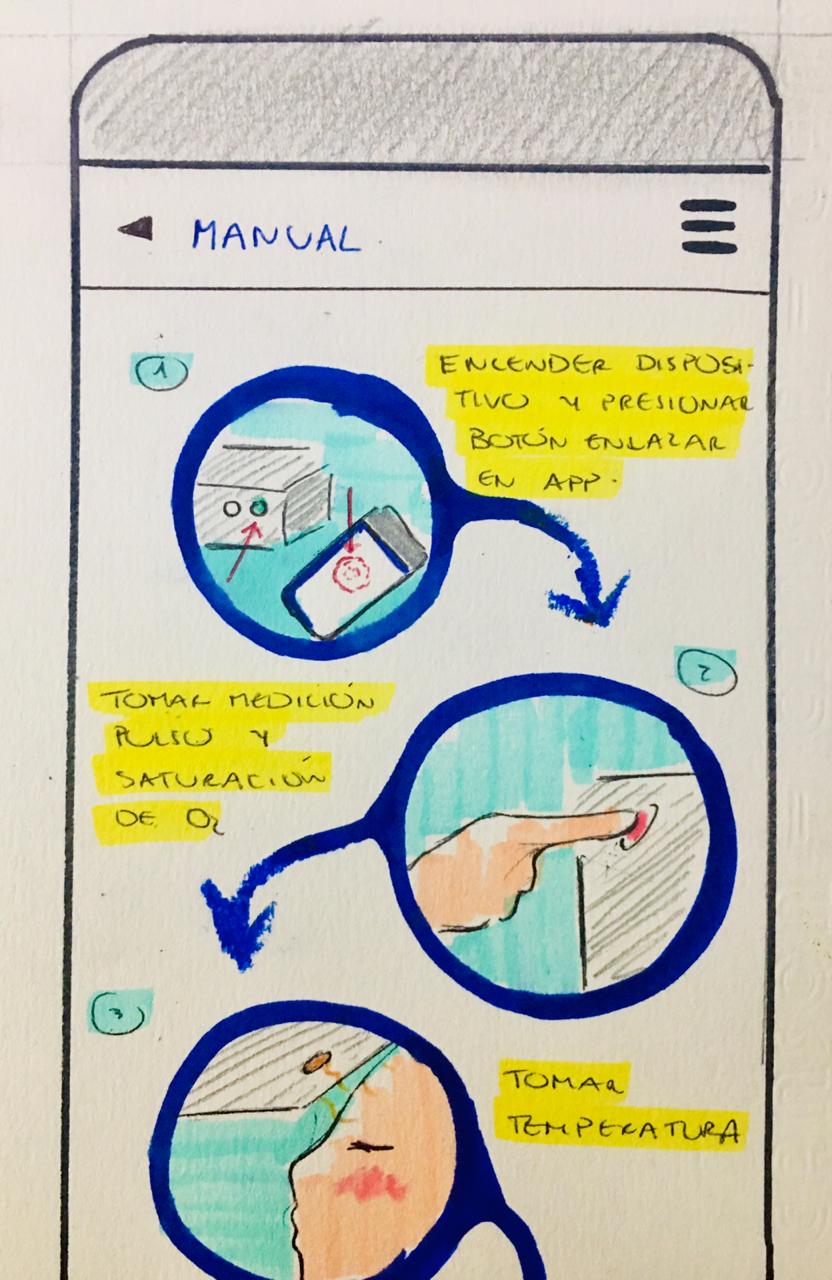 MANUAL
1
ENCENDER DISPOSI-
TIVO Y PRESIONAR
BOTÓN ENLAZAR
EN APP.
2
TOMAR MEDICIÓN
PULSO Y
SATURACIÓN
DE O2
3
TOMAR
TEMPERATURA